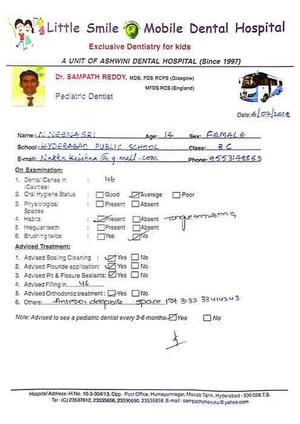 Little Smile Mobile Dental Hospital
Exclusive Dentistry for kids
A UNIT OF ASHWINI DENTAL HOSPITAL (Since 1997)
Dr. SAMPATH REDDY, MDS. FDS RCPS (Glasgow)
MFDS RCS (England)
Pediatric Dentist
Date: 6/07/2012
Name: N. NEENASRI Age: 14 Sex: FEMALE
School: HYDERABAD PUBLIC SCHOOL Class: 8 C
E-mail: Phone: 9553149863
On Examination:
1. Dental Caries in (Cavities) : 46
2. Oral Hygiene Status : Good Average Poor
3. Physiological Spaces : Present Absent
4. Habits : Present Absent
5. Irregular teeth : Present Absent
6. Brushing twice : Yes No
Advised Treatment:
1. Advised Scaling Cleaning : Yes No
2. Advised Flouride application: Yes No
3. Advised Pit & Fissure Sealants: Yes No
4. Advised Filling in 46
5. Advised Orthodontic treatment : Yes No
6. Others: Anterior deepbite space
Note: Advised to see a pediatric dentist every 3-6 months Yes No
Hospital Address: H.No. 10-3-304/13, Opp. Post Office, Humayunnagar, Masab Tank, Hyderabad - 500 028 T.S.
Tel: (C) 23537612, 23535858, 23590690, 23535858. E-mail: sampathcheruku@yahoo.com